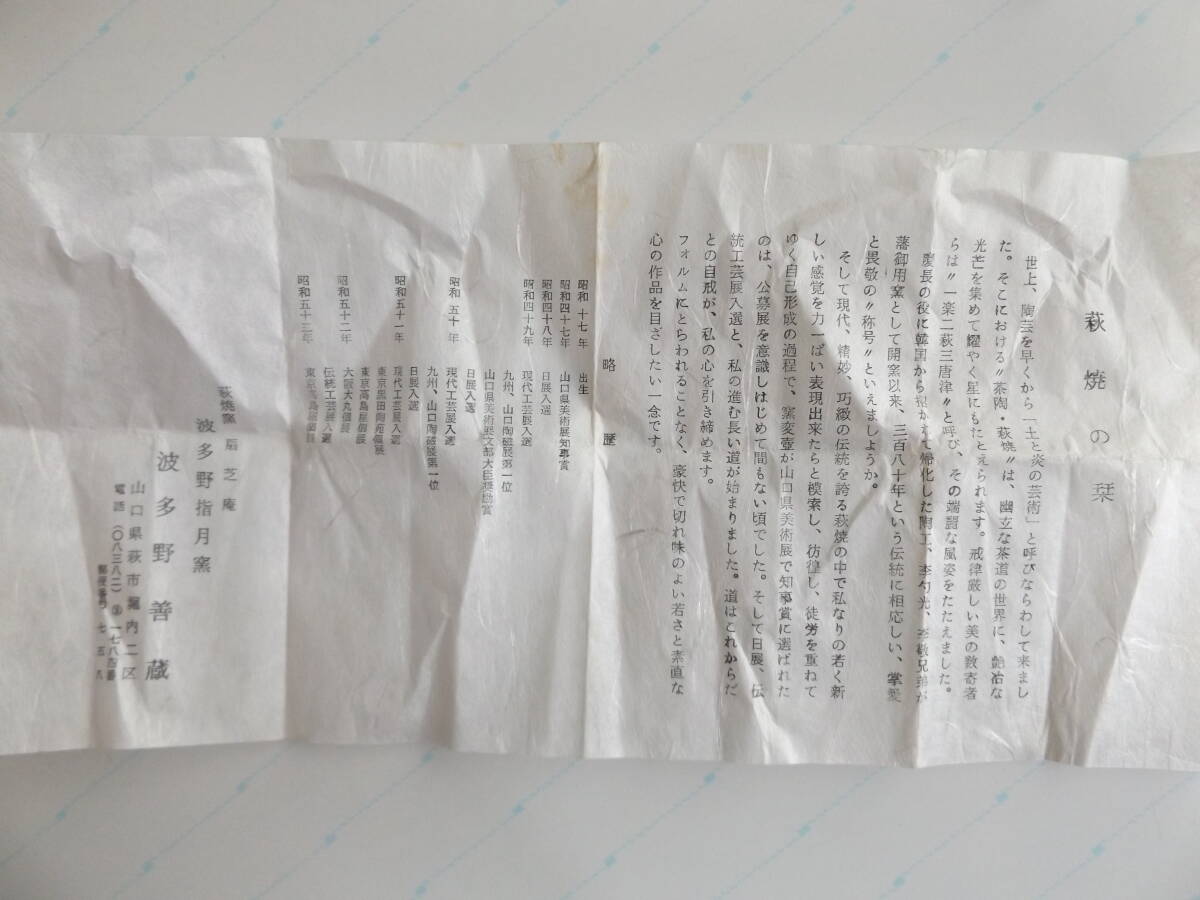 萩焼の栞
世上、陶芸を早くから「土と炎の芸術」と呼びならわして来まし
た。そこにおける〃茶陶・萩焼〃は、幽玄な茶道の世界に、艶冶な
光芒を集めて耀やく星にもたとえられます。戒律厳しい美の数寄者
らは〃一楽二萩三唐津〃と呼び、その端麗な風姿をたたえました。
慶長の役に韓国から招かれて帰化した陶工、李勺光、李敬兄弟が
藩御用窯として開窯以来、三百八十年という伝統に相応しい、掌愛
と畏敬の〃称号〃といえましようか。
そして現代、精妙、巧緻の伝統を誇る萩焼の中で私なりの若く新
しい感覚を力一ぱい表現出来たらと模索し、彷徨し、徒労を重ねて
ゆく自己形成の過程で、窯変壺が山口県美術展で知事賞に選ばれた
のは、公募展を意識しはじめて間もない頃でした。そして日展、伝
統工芸展入選と、私の進む長い道が始まりました。道はこれからだ
との自戒が、私の心を引き締めます。
フォルムにとらわれることなく、豪快で切れ味のよい若さと素直な
心の作品を目ざしたい一念です。
略歴
昭和十七年 出生
昭和四十七年 山口県美術展知事賞
昭和四十八年 日展入選
昭和四十九年 現代工芸展入選
九州、山口陶磁展第一位
山口県美術展文部大臣奨励賞
日展入選
昭和五十年 現代工芸展入選
九州、山口陶磁展第一位
日展入選
昭和五十一年 現代工芸展入選
東京黒田陶苑個展
東京高島屋個展
昭和五十二年 大阪大丸個展
伝統工芸展入選
昭和五十三年 東京高島屋個展
萩焼窯 扇芝庵
波多野指月窯
波多野善蔵
山口県萩市堀内二区
電話(〇八三八二)②一七八四番
郵便番号 七五八